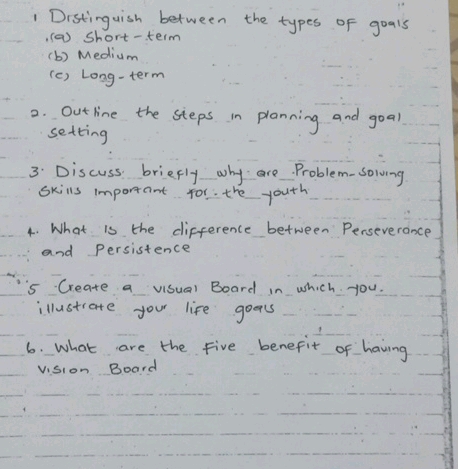 1 Distinguish between the types of goals
(a) Short-term
(b) Medium
(c) Long-term
2. Outline the steps in planning and goal
setting
3. Discuss briefly why are Problem-solving
skills important for the youth
4. What is the difference between Perseverance
and Persistence
5 Create a visual Board in which you.
illustrate your life goals
6. What are the five benefit of having
vision Board